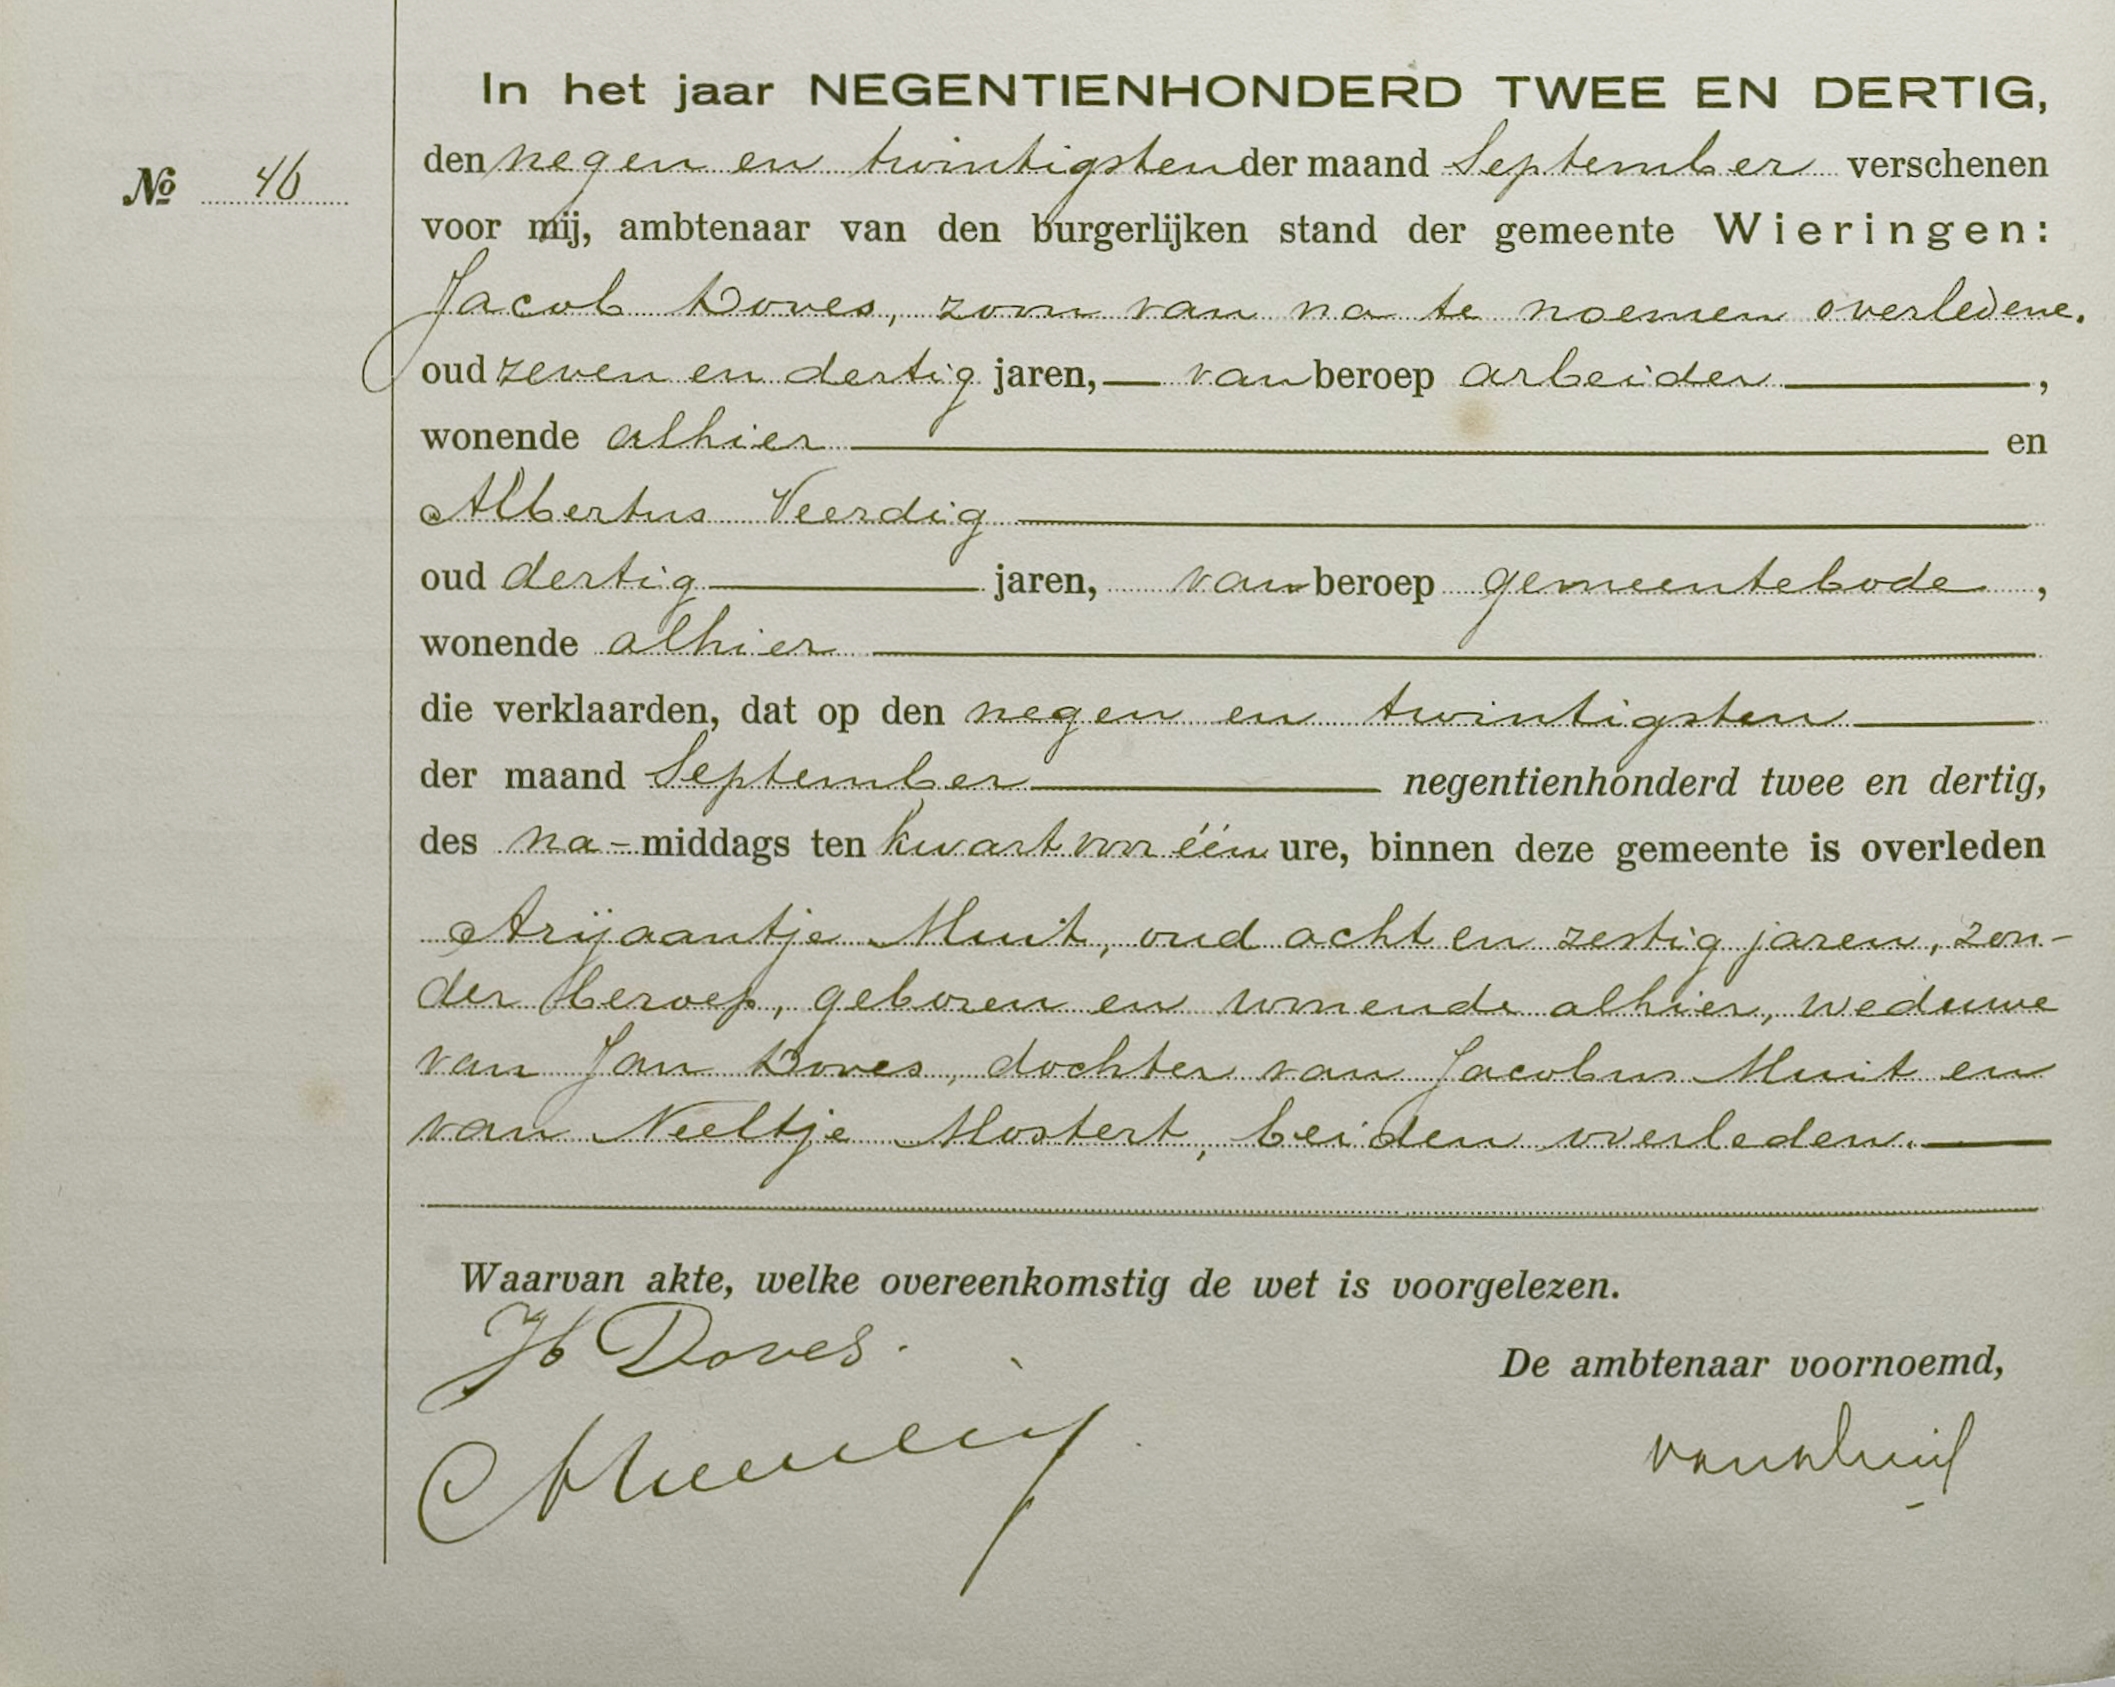 In het jaar NEGENTIENHONDERD TWEE EN DERTIG,
den negen en twintigsten der maand September verschenen
Nº 46
voor mij, ambtenaar van den burgerlijken stand der gemeente Wieringen:
Jacob Doves, zoon van na te noemen overledene.
oud zeven en dertig jaren, van beroep arbeider,
wonende alhier en
Albertus Veerdig
oud dertig jaren, van beroep gemeentebode,
wonende alhier
die verklaarden, dat op den negen en twintigsten
der maand September negentienhonderd twee en dertig,
des na-middags ten kwart voor één ure, binnen deze gemeente is overleden
Arijaantje Muit, oud acht en zestig jaren, zon-
der beroep, geboren en wonende alhier, weduwe
van Jan Doves, dochter van Jacobus Muit en
van Neeltje Mostert, beiden overleden.
Waarvan akte, welke overeenkomstig de wet is voorgelezen.
Jb Doves.
De ambtenaar voornoemd,